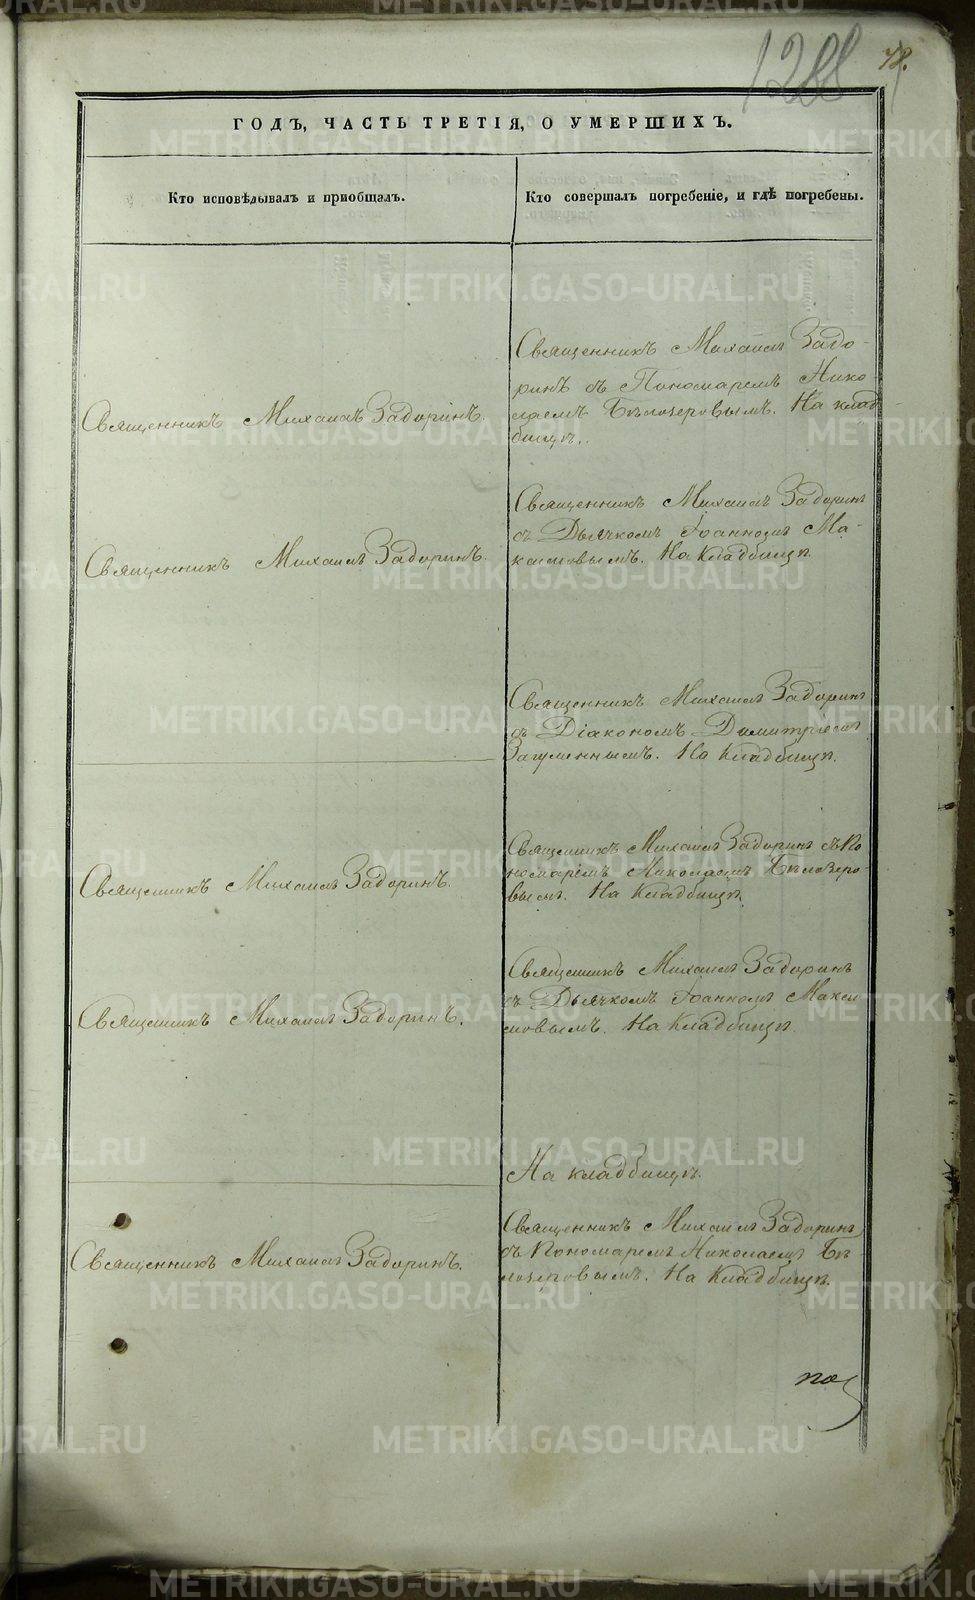 1288
78.
ГОДЪ, ЧАСТЬ ТРЕТІЯ, О УМЕРШИХЪ.
Кто исповѣдывалъ и приобщалъ.
Кто совершалъ погребеніе, и гдѣ погребены.
Священникъ Михаилъ Задоринъ.
Священникъ Михаилъ Задо-
ринъ съ Пономаремъ Нико-
лаемъ Бѣлозеровымъ. На клад-
бищѣ.
Священникъ Михаилъ Задоринъ.
Священникъ Михаилъ Задоринъ
съ Дьячкомъ Іоанномъ Ма-
ксимовымъ. На Кладбищѣ.
Священникъ Михаилъ Задоринъ
съ Діакономъ Димитріемъ
Загуменнымъ. На Кладбищѣ.
Священникъ Михаилъ Задоринъ.
Священникъ Михаилъ Задоринъ съ По
номаремъ Николаемъ Бѣлозеро-
вымъ. На Кладбищѣ.
Священникъ Михаилъ Задоринъ.
Священникъ Михаилъ Задоринъ
съ Дьячкомъ Іоанномъ Макси
мовымъ. На Кладбищѣ.
На кладбищѣ.
Священникъ Михаилъ Задоринъ.
Священникъ Михаилъ Задоринъ
съ Пономаремъ Николаемъ Бѣ
лозеровымъ. На Кладбищѣ.
по
METRIKI.GASO-URAL.RU